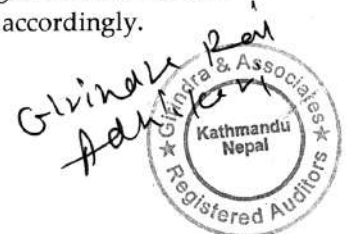 accordingly.
Girindra Raj
Adhikari
Girindra & Associates
Kathmandu
Nepal
Registered Auditors